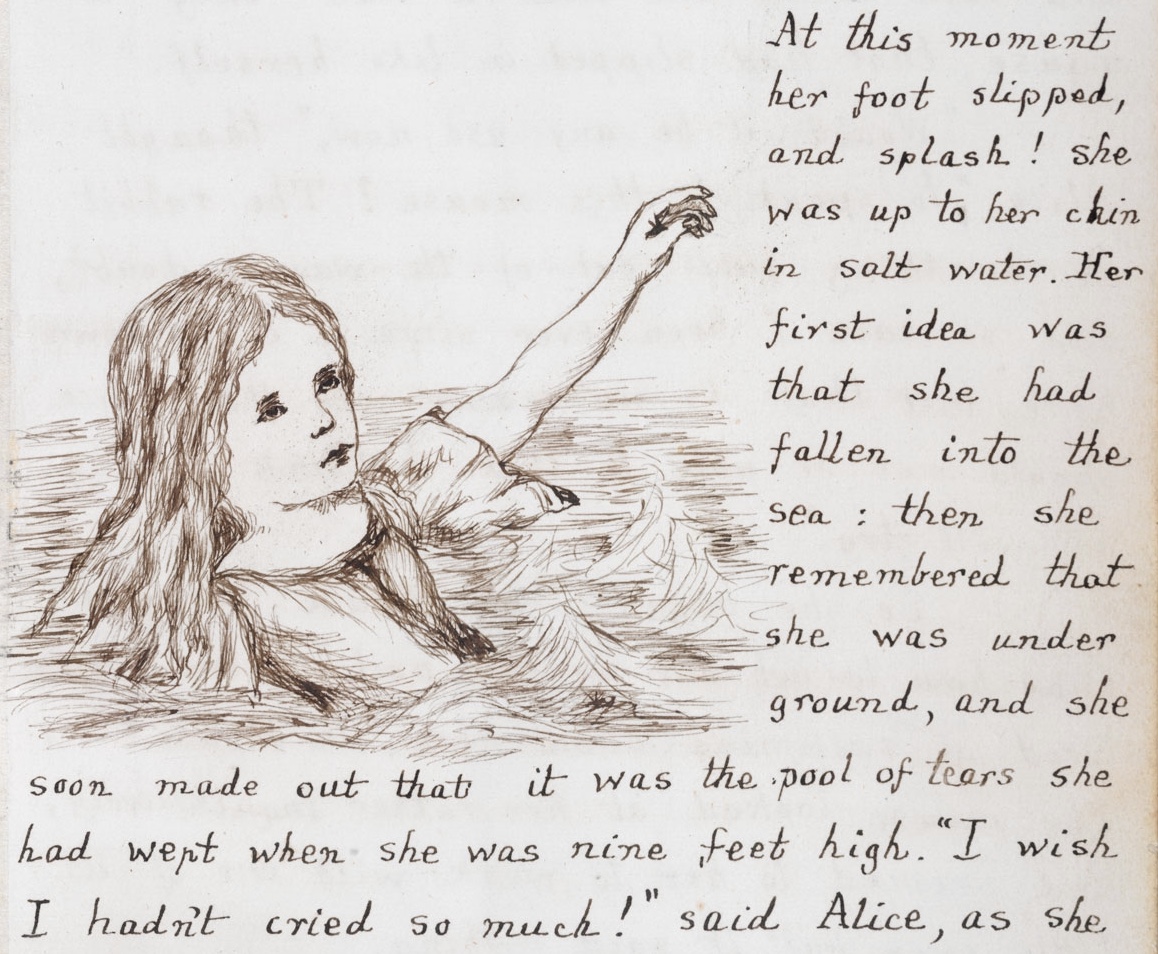 At this moment
her foot slipped,
and splash! she
was up to her chin
in salt water. Her
first idea was
that she had
fallen into the
sea: then she
remembered that
she was under
ground, and she
soon made out that it was the pool of tears she
had wept when she was nine feet high. "I wish
I hadn't cried so much!" said Alice, as she